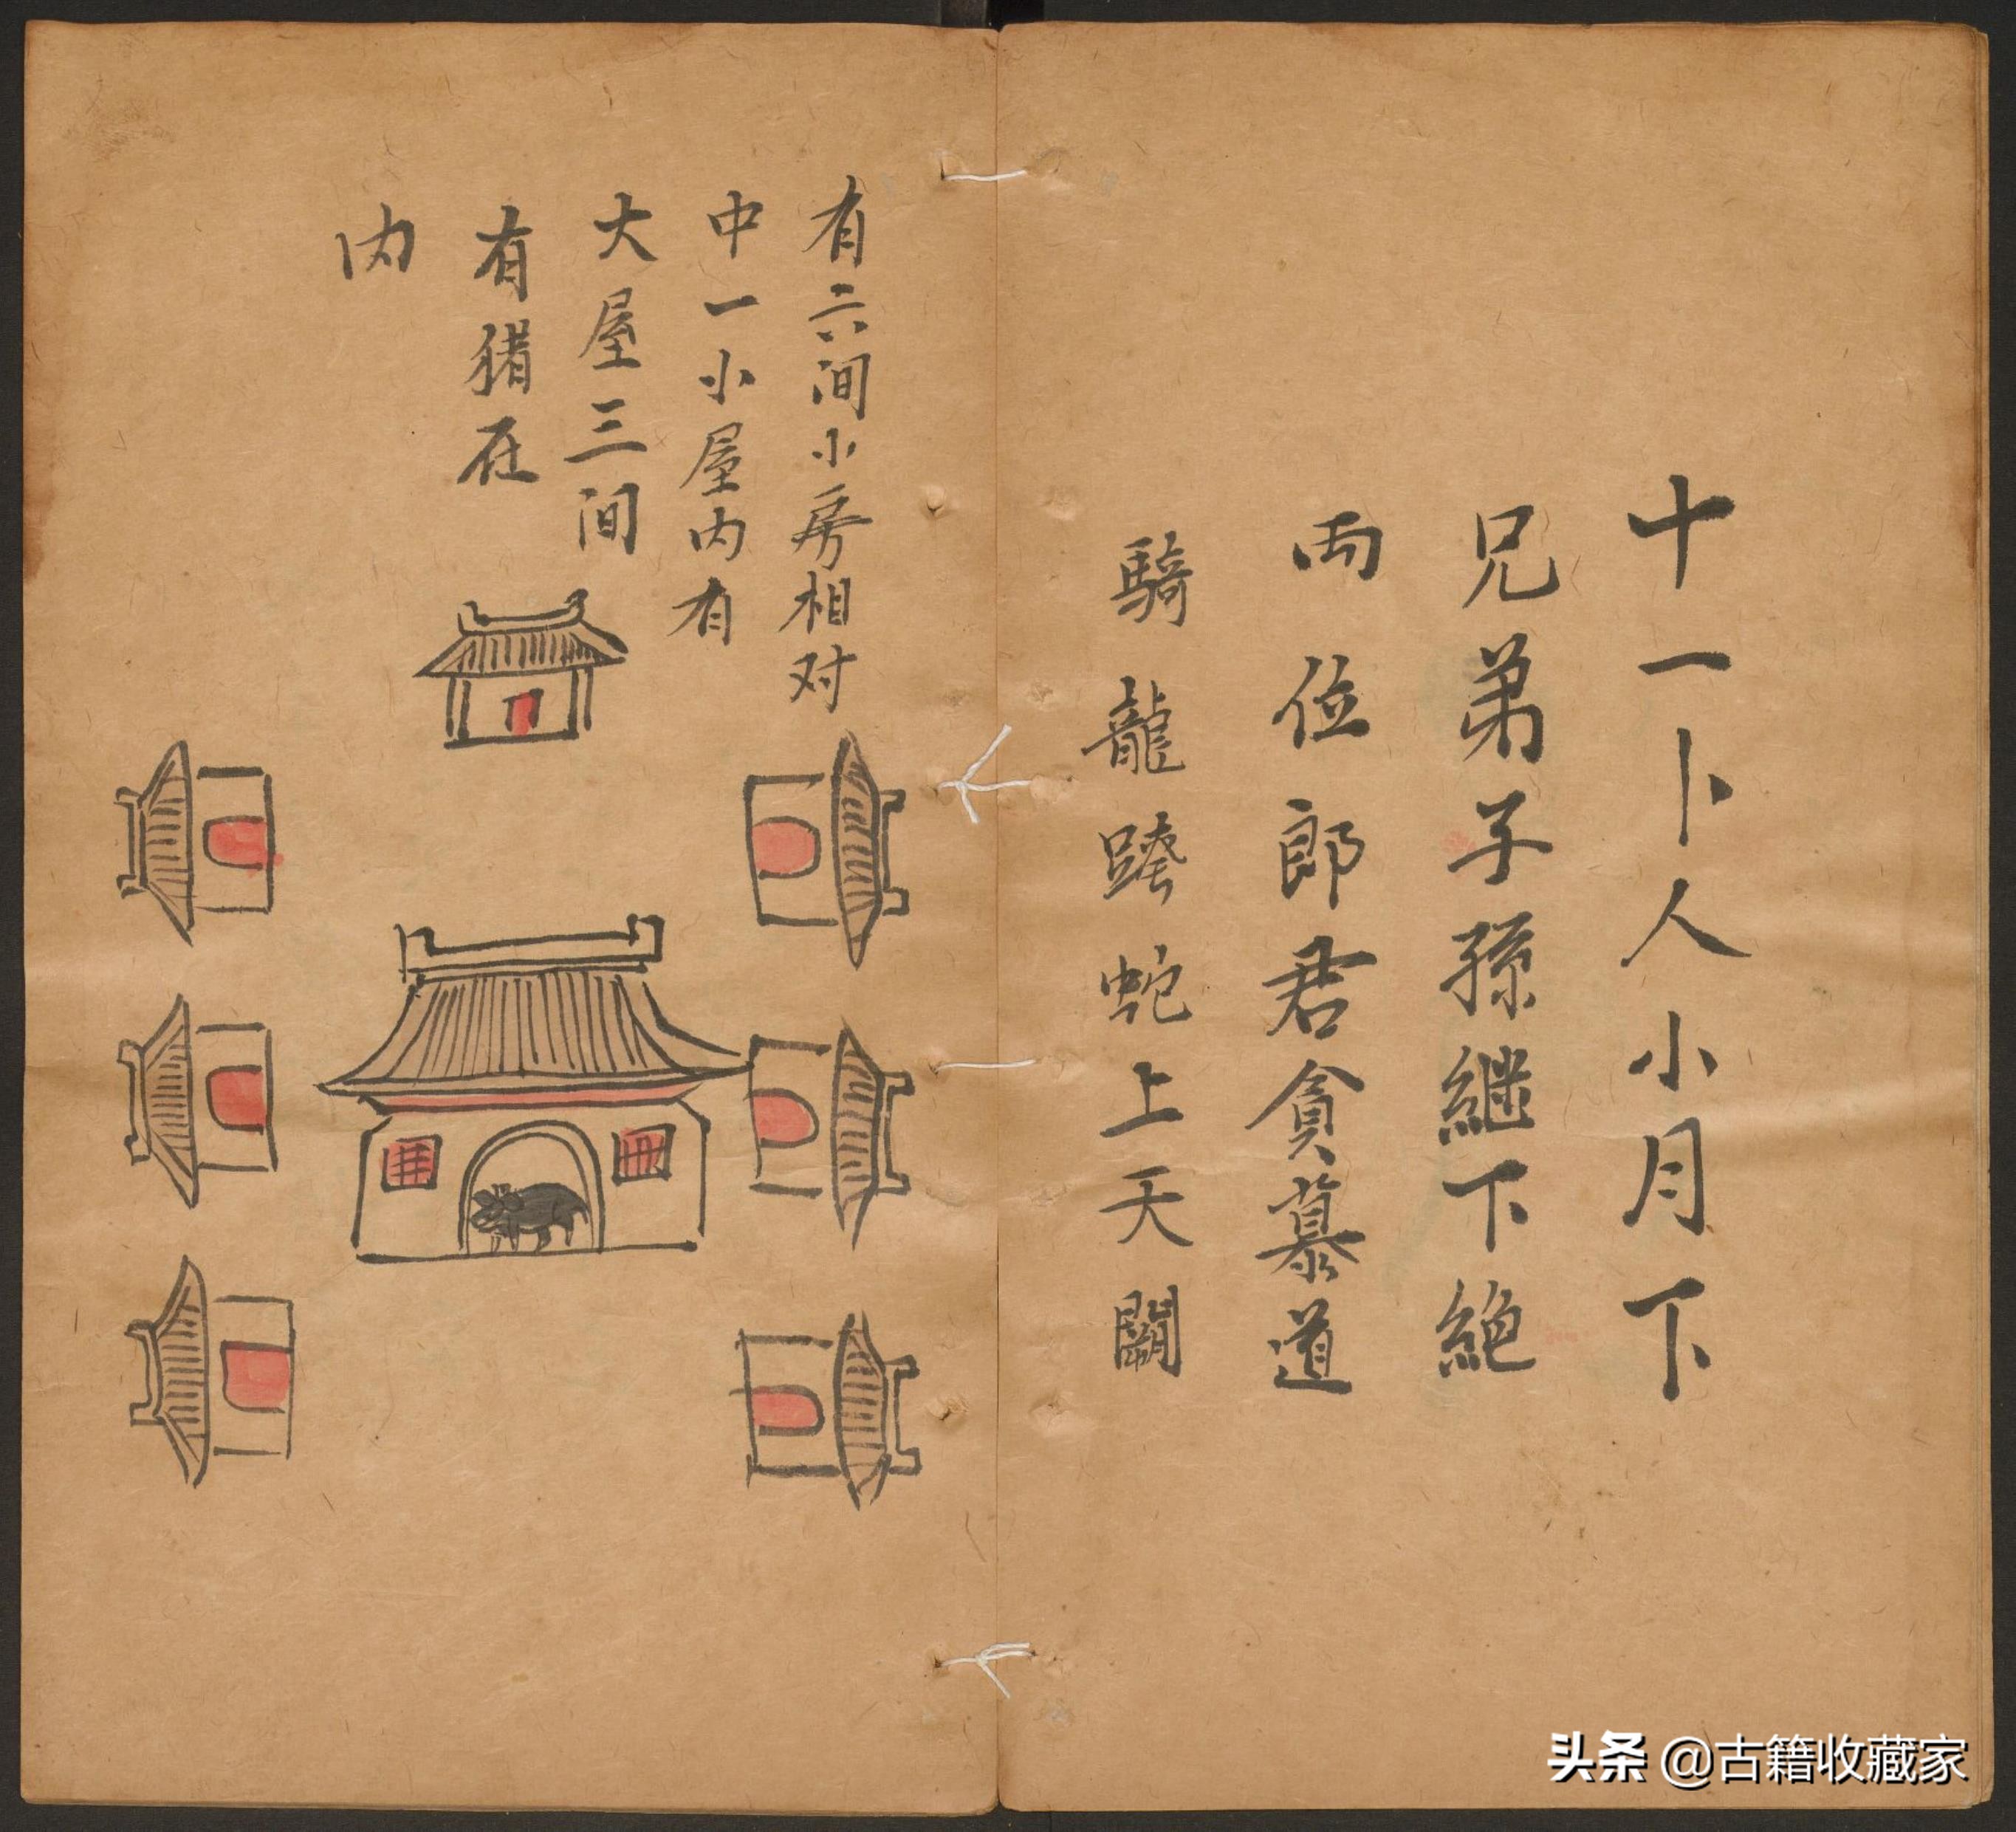 十一卜人小月下
兄弟子孫継下絶
两位郎君貪慕道
騎龍跨蛇上天關
有六间小房相对
中一小屋内有
大屋三间
有猪在
内
头条 @古籍收藏家